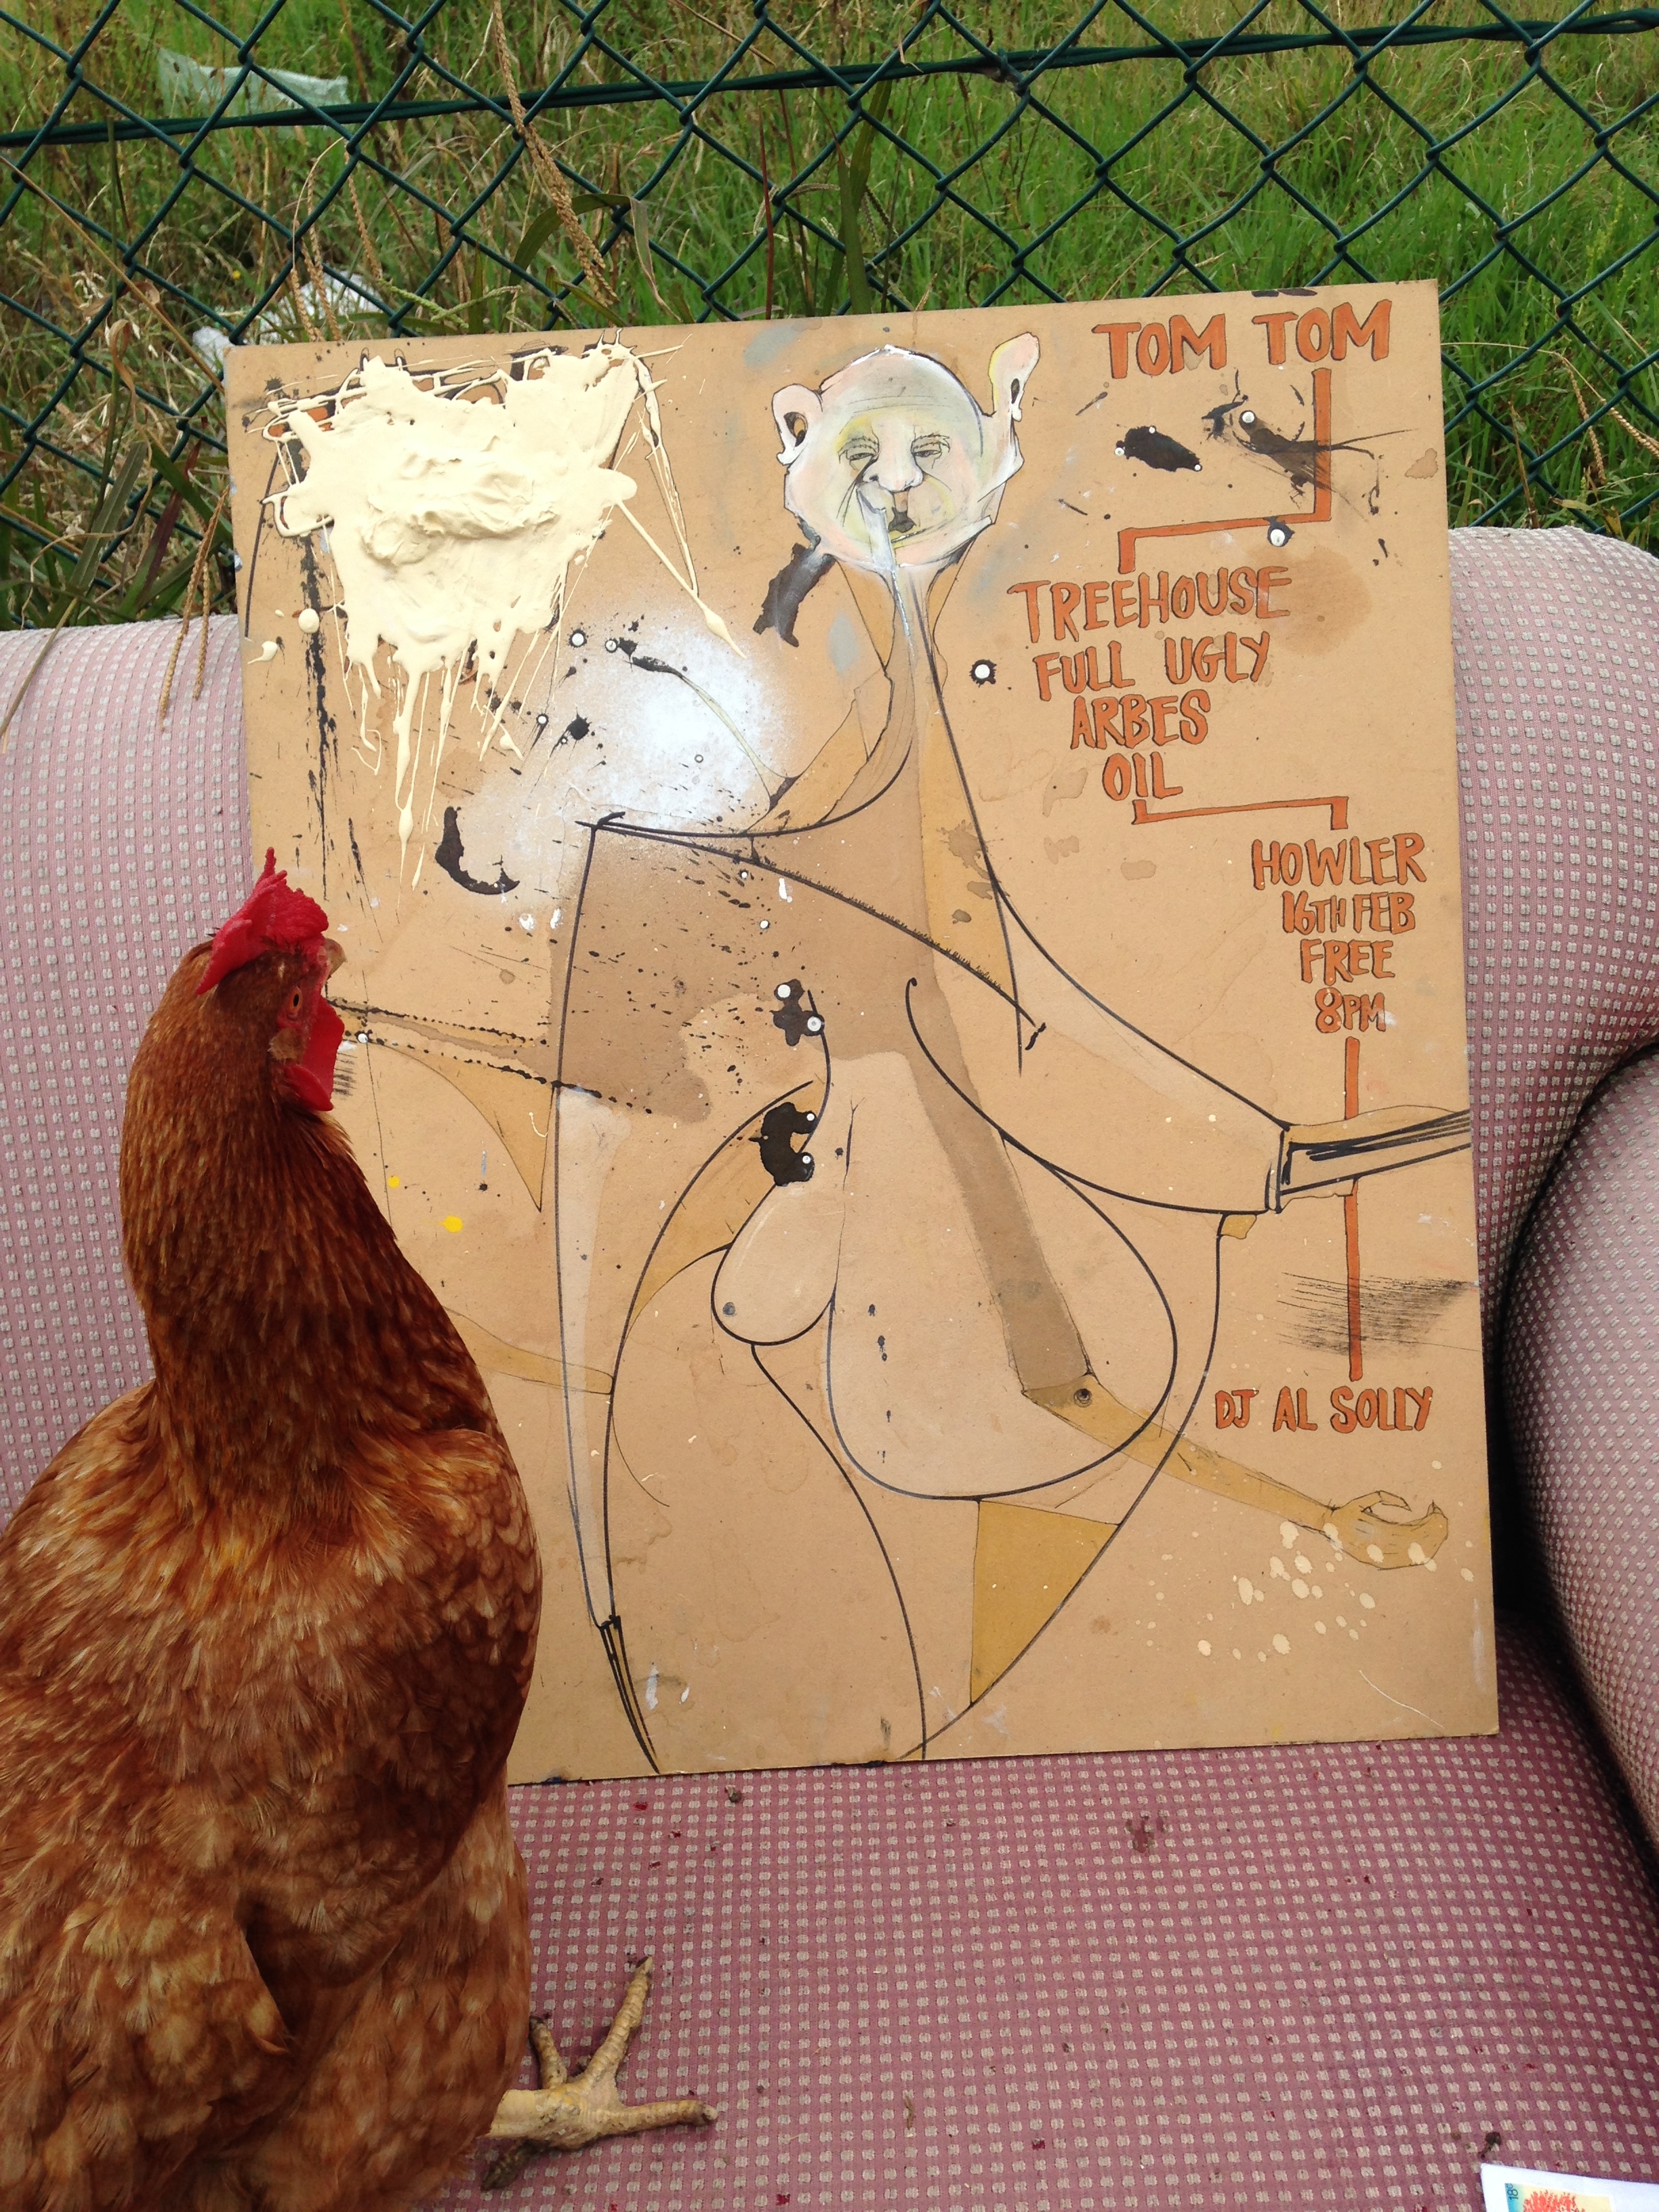 TOM TOM
TREEHOUSE
FULL UGLY
ARBES
OIL
HOWLER
16TH FEB
FREE
8PM
DJ AL SOLLY